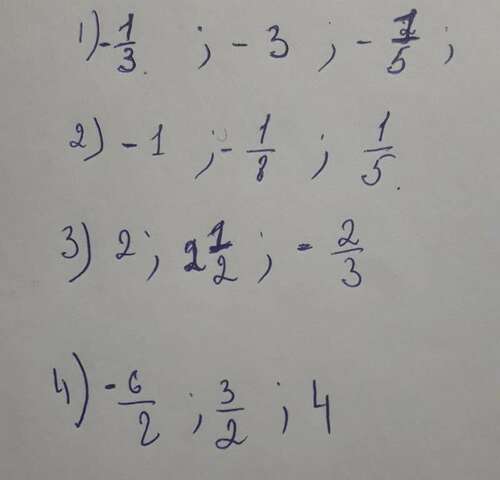 1) -1/3 ; -3 ; -1/5 ;
2) -1 ; -1/8 ; 1/5.
3) 2 ; 1 1/2 ; -2/3
4) -6/2 ; 3/2 ; 4